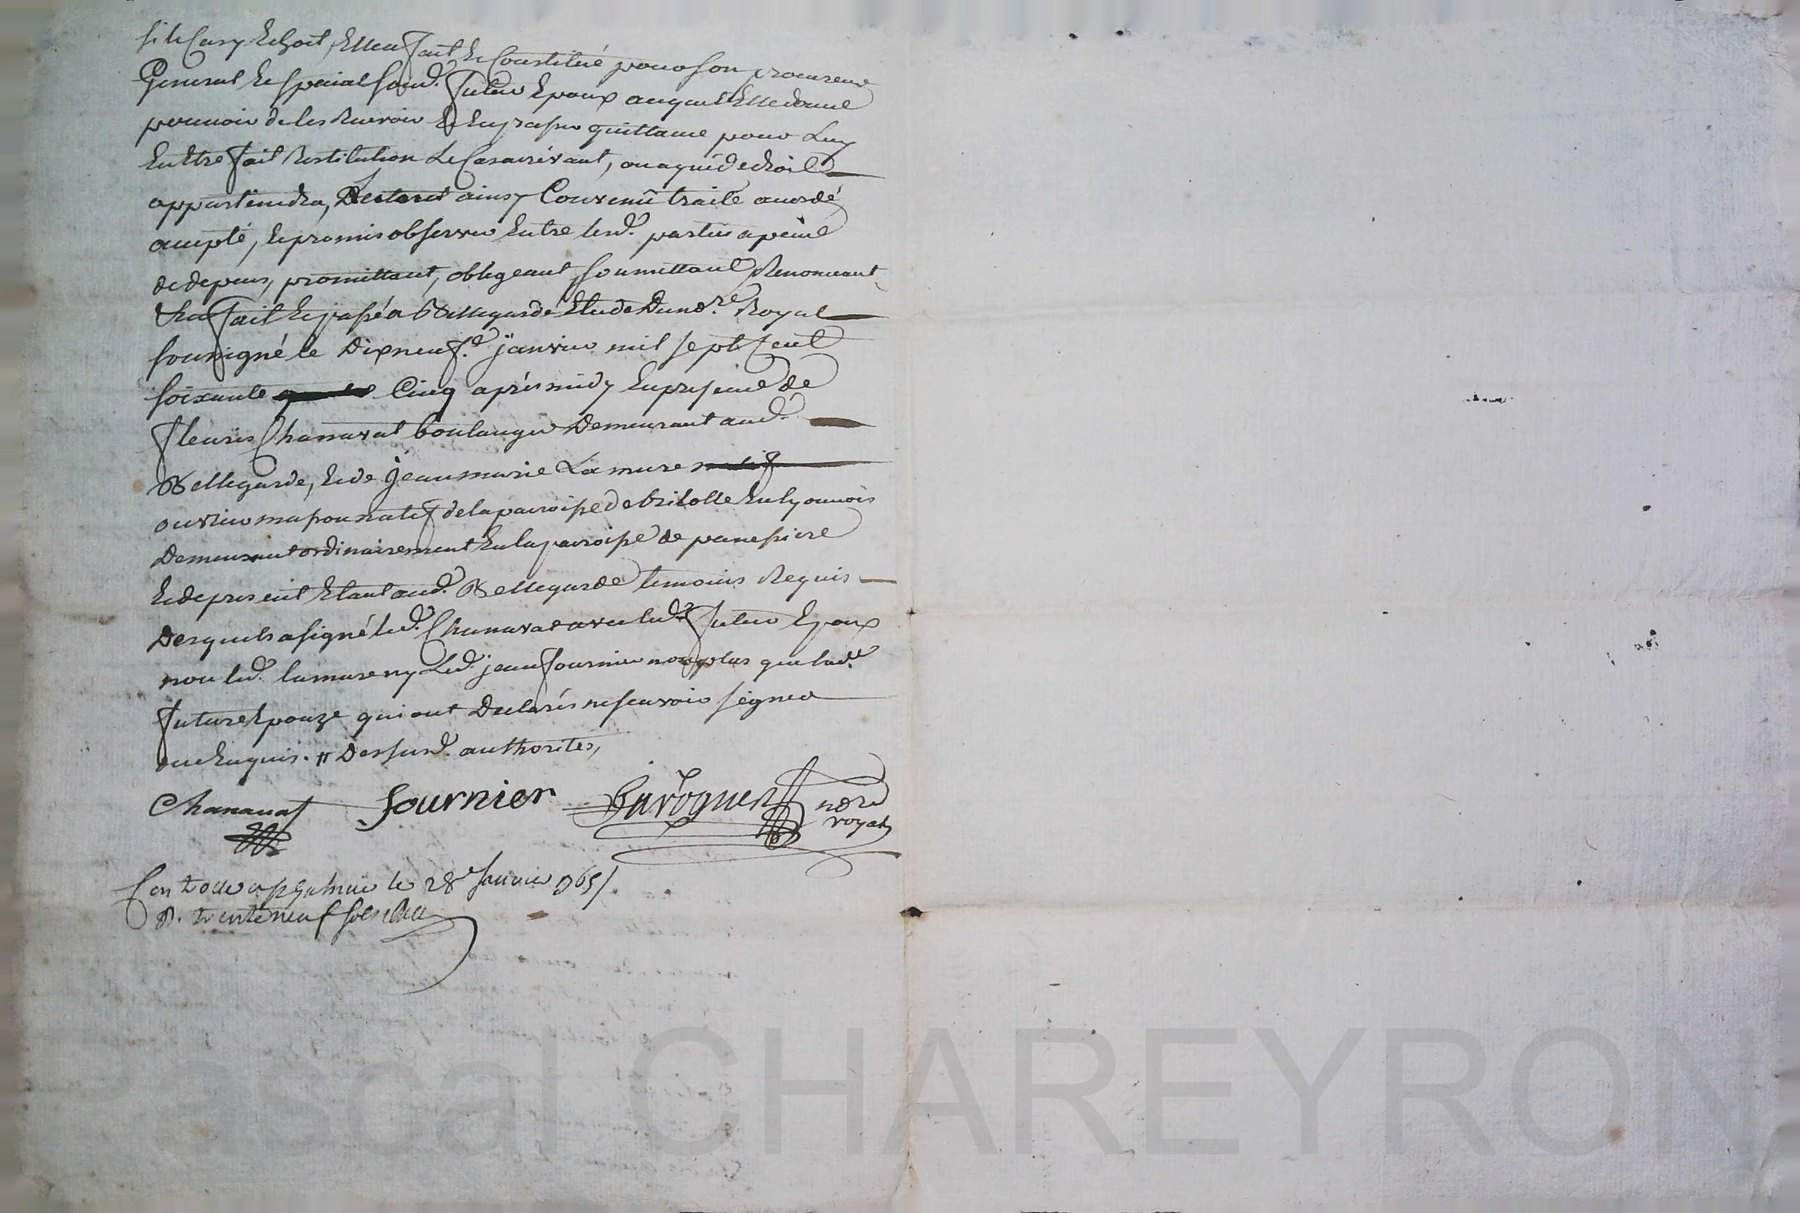 si le Cas y Echoit, Elle a fait Et Constitué pour son procureur
General Et special led.t futur Epoux auquel Elle donne
pouvoir de les Recevoir Et En passer quittance pour Luy
En Etre fait Restitution Le Cas arrivant, ou a qui de droit
appartiendra, ainsy Convenû traité accordé
accepté, Et promis observer Entre lesd. parties a peine
de depens, promettant, obligeant, soumettant, Renonceant
fait Et passé a Bellegarde Etude Du no.re Royal
soussigné le Dixneuf.e janvier mil sept Cent
soixante Cinq après midy En presence de
fleuris Chanavat boulanger Demeurant aud.
Bellegarde, Et de jean marie La mure
ouvrier masson natif de la paroisse de brilolle En lyonnois
Demeurant ordinairement En la paroisse de panessiere
Et de present Etant aud. Bellegarde temoins Requis
Desquels a signé led. Chanavat avec led. futur Epoux
non led. lamure ny Led. jean fournier non plus que lad.te
future Epouze qui ont Declarés ne scavoir signer
de ce Enquis. // Des susd. authorités,
Chanavat fournier no.re
royal
Con.tr a st galmier le 28e janvier 1765
R. trente neuf sols
Pascal CHAREYRON